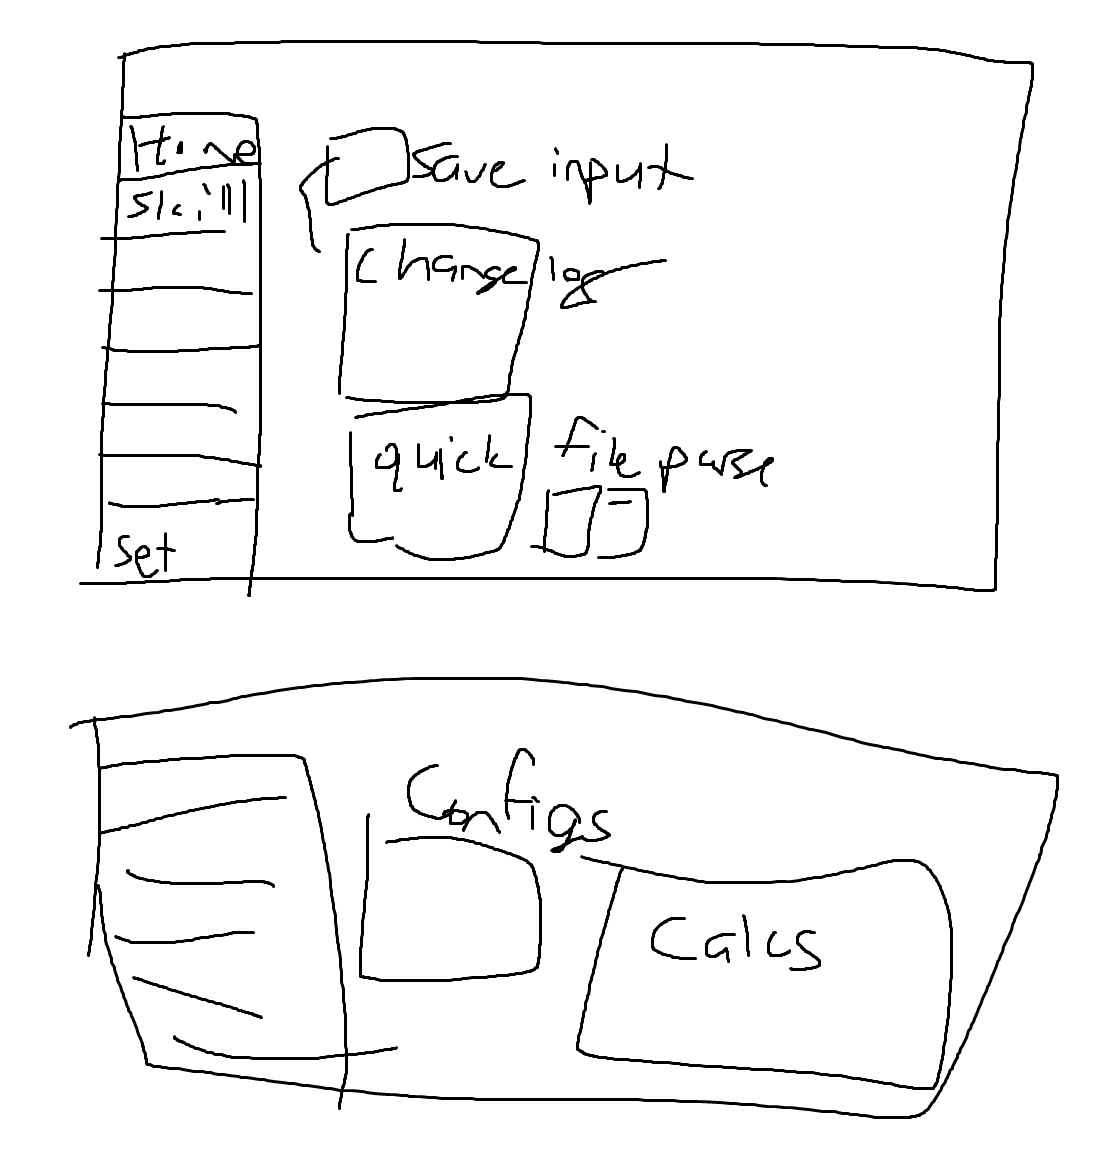 Home
Skill
save input
change log
quick
file parse
set
Configs
Calcs